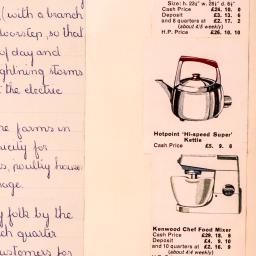 (with a branch
doorstep, so that
of day and
ightning storms
t the electric
he farms in
icity for
s, poultry house
nage.
y folk by the
ch quarter
ustomers for
Size: h. 23½" w. 28½" d. 8½"
Cash Price £24. 10. 0
Deposit £3. 13. 6
and 8 quarters at £2. 17. 2
(about 4/5 weekly)
H.P. Price £26. 10. 10
Hotpoint 'Hi-speed Super'
Kettle
Cash Price £5. 9. 6
Kenwood Chef Food Mixer
Cash Price £29. 18. 6
Deposit £4. 9. 10
and 10 quarters at £2. 16. 9
(about 4/4 weekly)